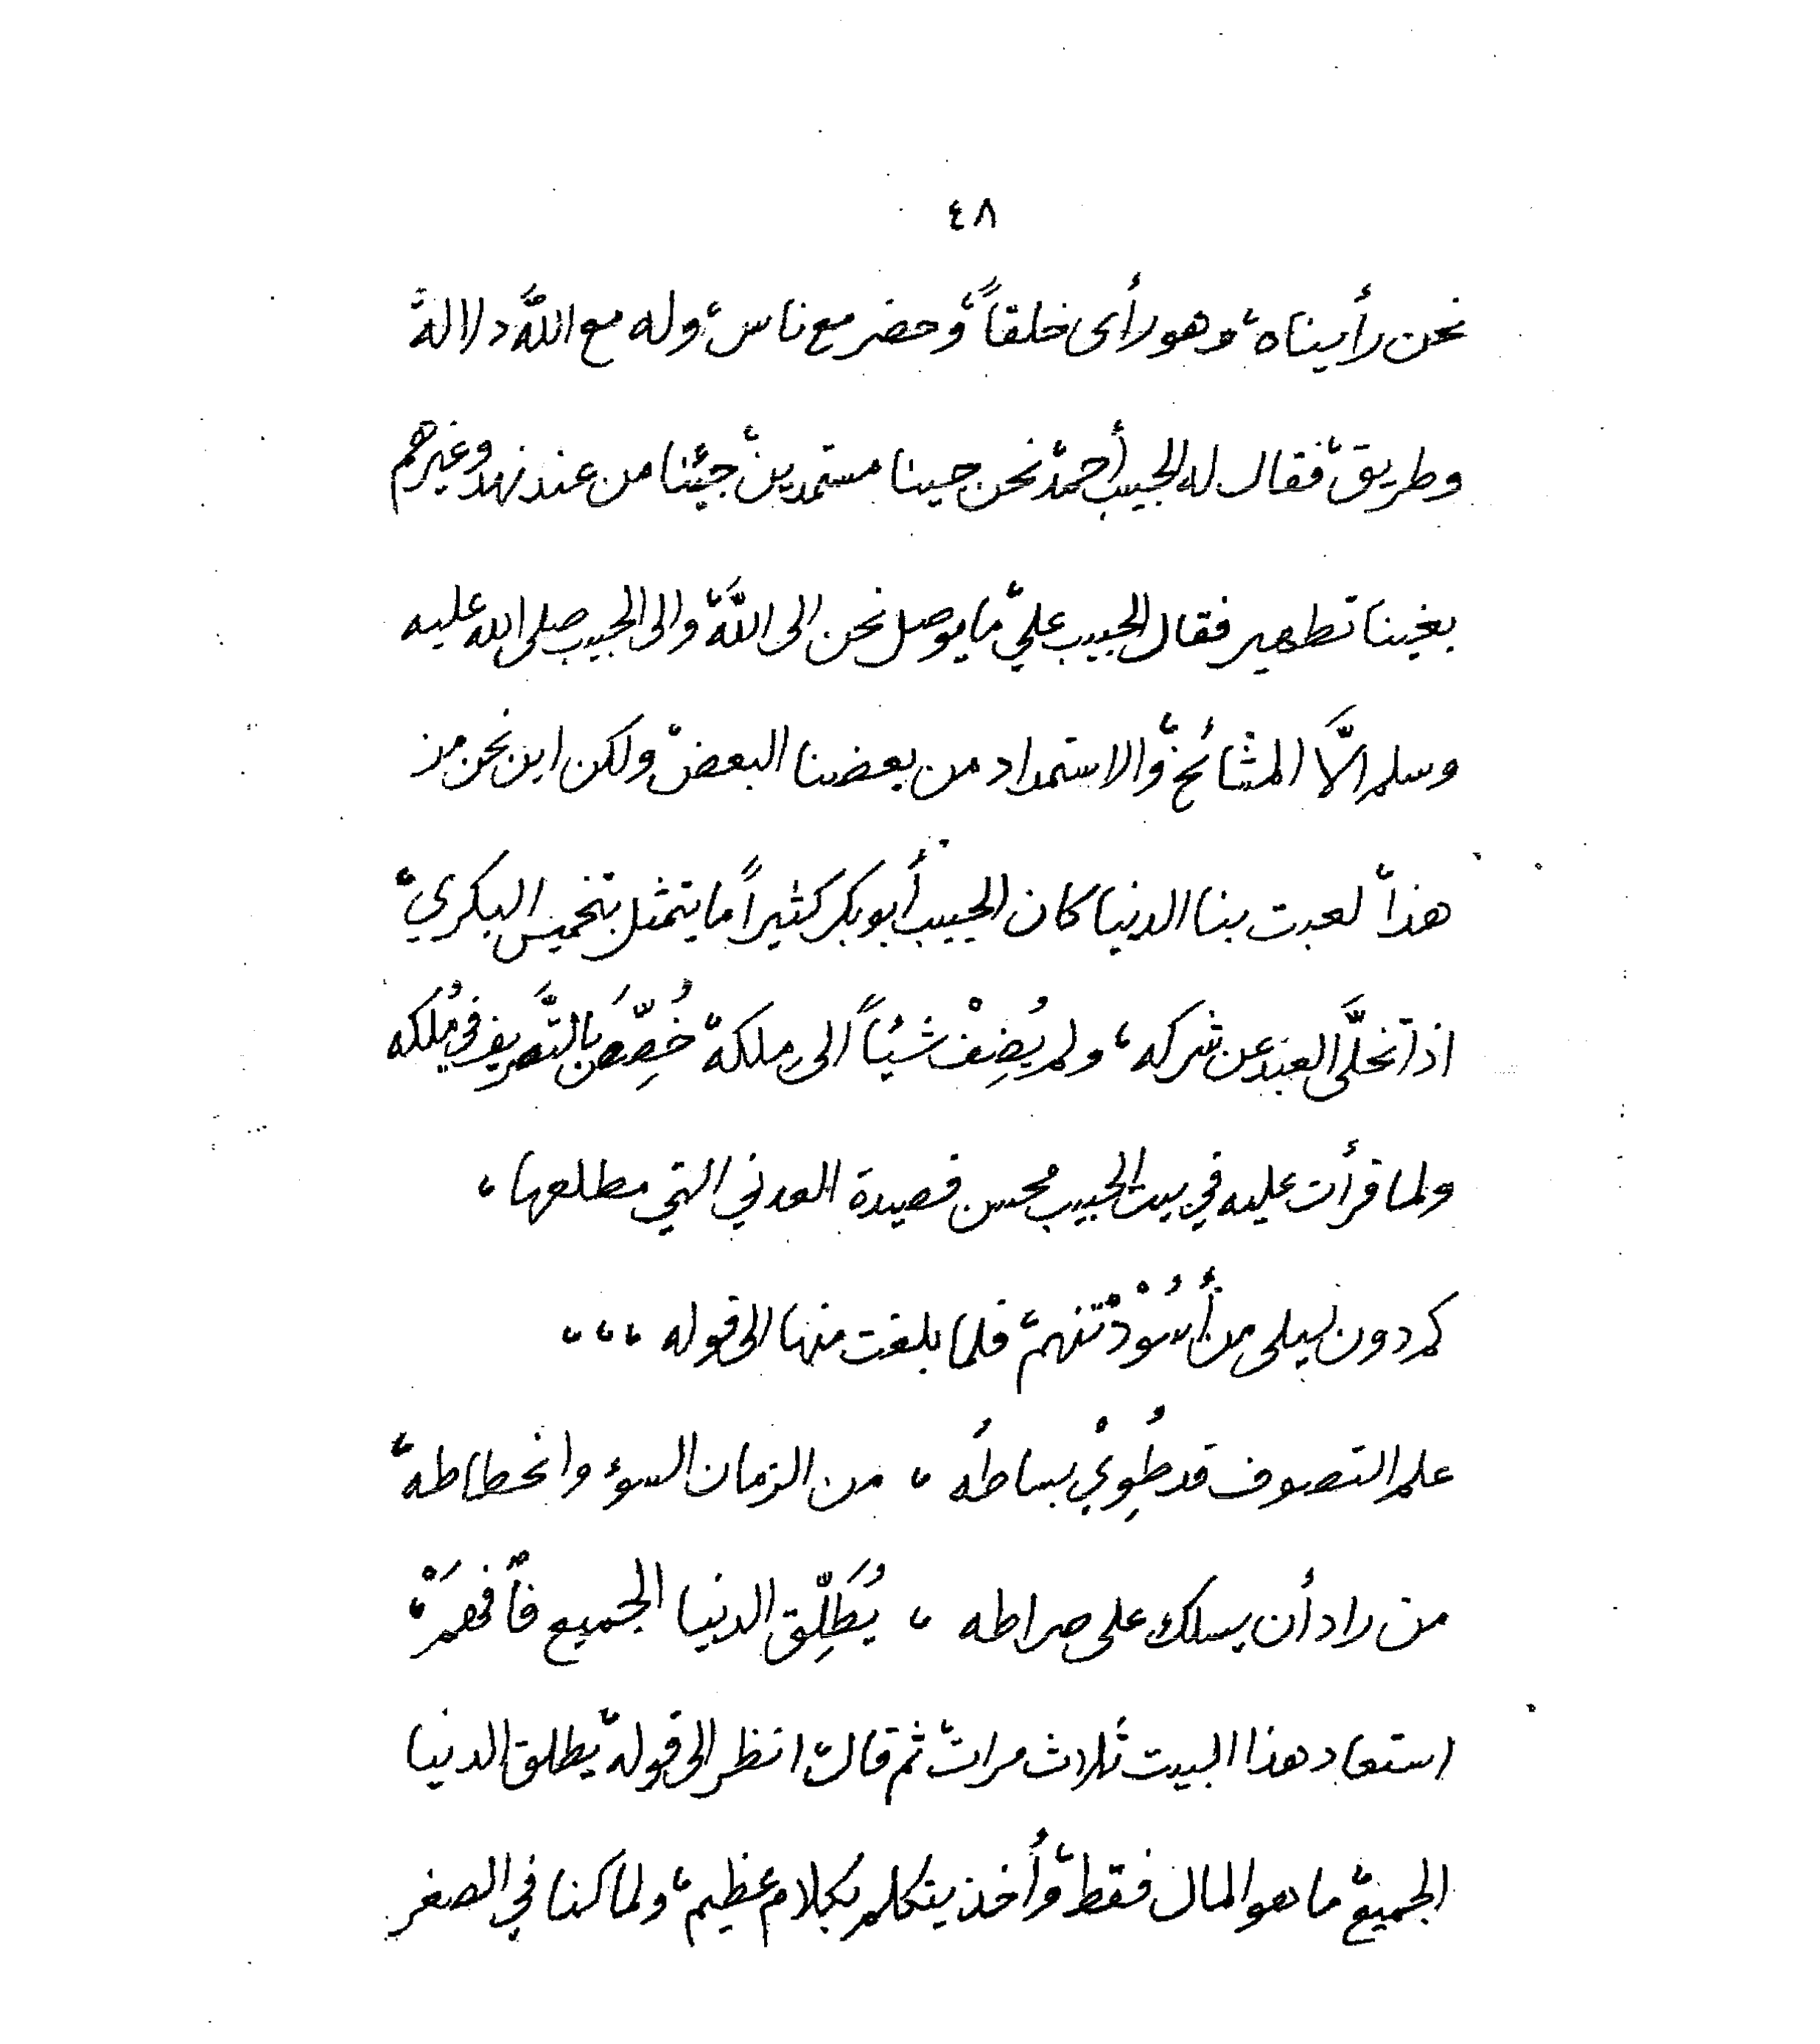 ٤٨
نحن رأيناه، وهو رأى خلقاً، وحضر مع ناس، وله مع اللّٰه دلالة
وطريق، فقال له الحبيب أحمد، نحن جينا مستمدين، جيئنا من عند نهد وغيرهم
بغينا تطهير فقال الحبيب علي، ما يوصل نحن الى اللّٰه، والى الحبيب صلى الله عليه
وسلم الَّا المشائخ، والاستمداد من بعضنا البعض، ولكن اين نحن من
هذا، لعبت بنا الدنيا كان الحبيب أبوبكر كثيراً ما يتمثل بتخميس البكري،
اذا تخلَّى العبد عن شركه، ولم يُضِفْ شيئاً الى ملكه، خُصِّصَ بالتَّصريف في مُلكه
ولما قرأت عليه في بيت الحبيب محسن قصيدة العدني التي مطلعها،
كم دون ليلى من أُسُوْدْ تنهم، فلما بلغت منها الى قوله ،،،
علم التصوف قد طُوِيْ بساطُه ، من الزمان السوء وانحطاطه،
من راد أن يسلك على صراطه ، يُطَلِّق الدنيا الجميع فافهمَْ،
استعاد هذا البيت ثلاث مرات، ثم قال، انظر الى قوله، يطلق الدنيا
الجميع، ما هو المال فقط، وأخذ يتكلم بكلام عظيم، ولما كنا في الصغر